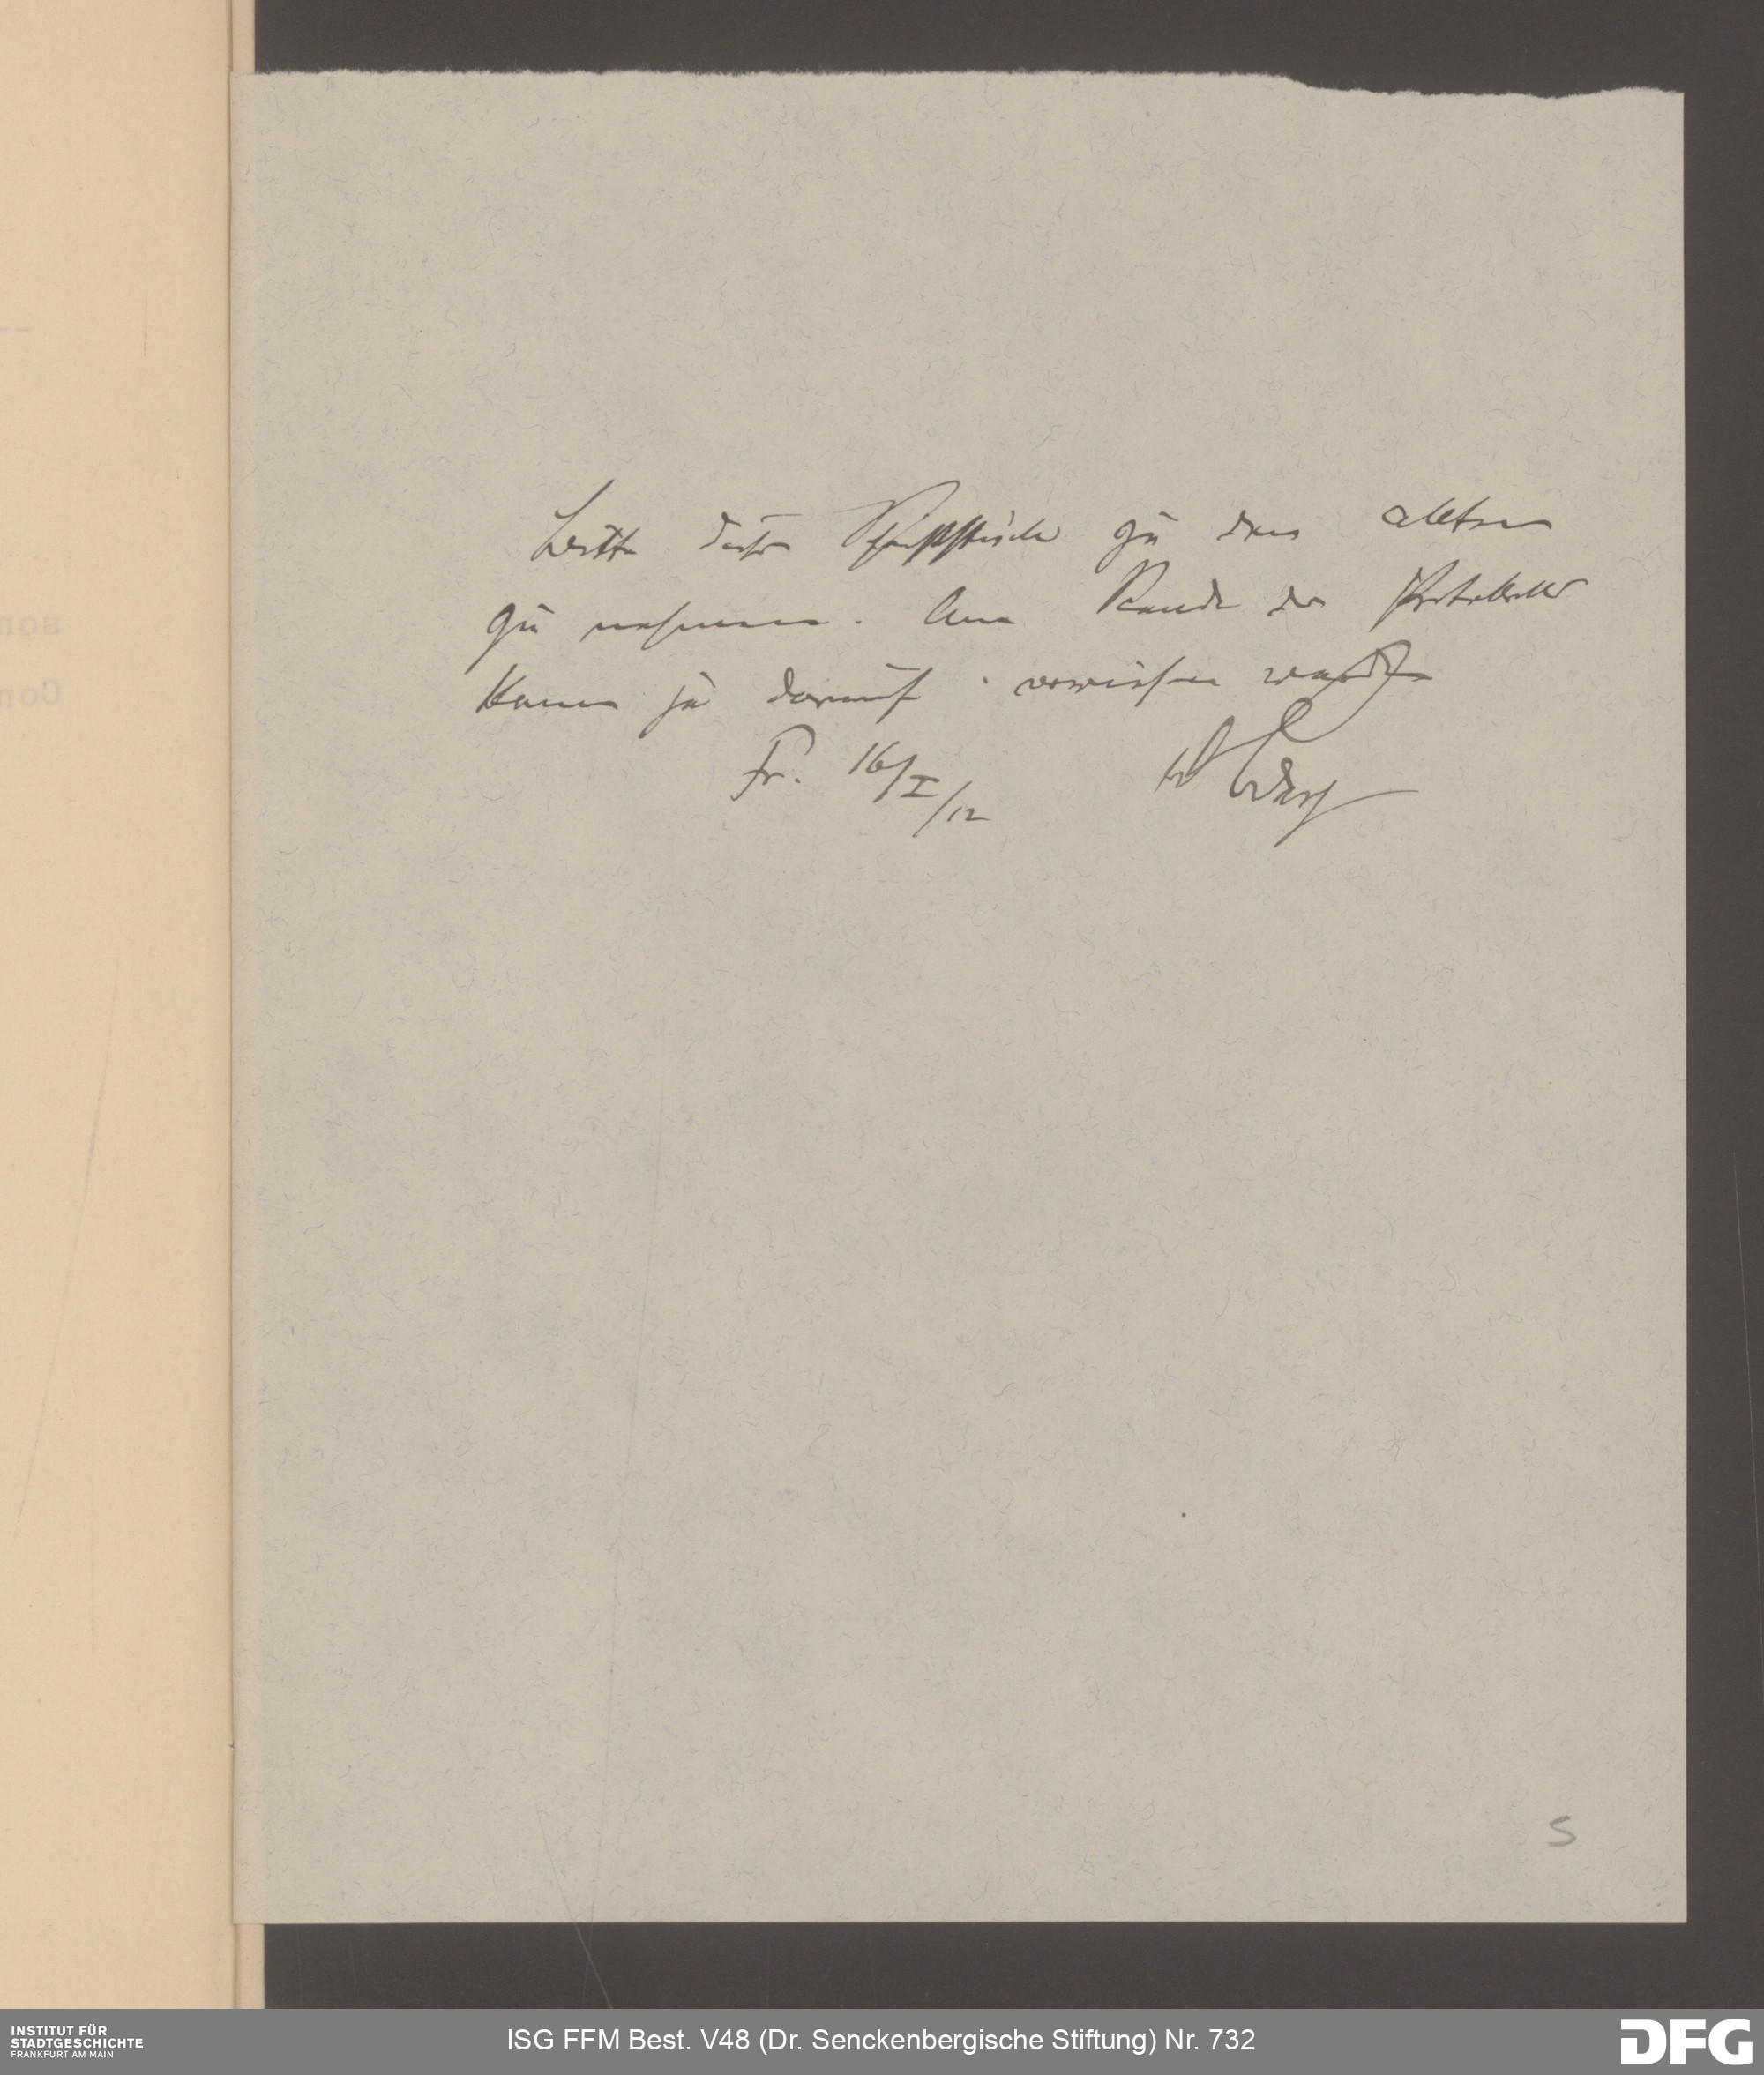 Bitte dieses Schriftstück zu den Akten
zu nehmen. Am Rande des Protokolls
kann ja darauf verwiesen werden
Fr. 16/I/12
5
INSTITUT FÜR
STADTGESCHICHTE
FRANKFURT AM MAIN
ISG FFM Best. V48 (Dr. Senckenbergische Stiftung) Nr. 732
DFG